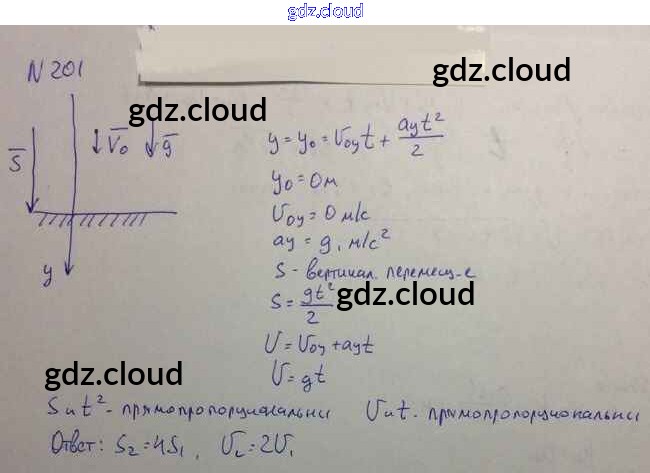 gdz.cloud
N 201
gdz.cloud
gdz.cloud
S V₀ g
y = y₀ = V₀yt + ayt²/2
y₀ = 0 м
V₀y = 0 м/с
ay = g, м/с²
S - вертикал. перемещ-е
S = gt²/2
gdz.cloud
U = V₀y + ayt
U = gt
y
gdz.cloud
S и t² - прямопропорциональны U и t - прямопропорциональны
Ответ: S₂ = 4S₁, U₂ = 2U₁